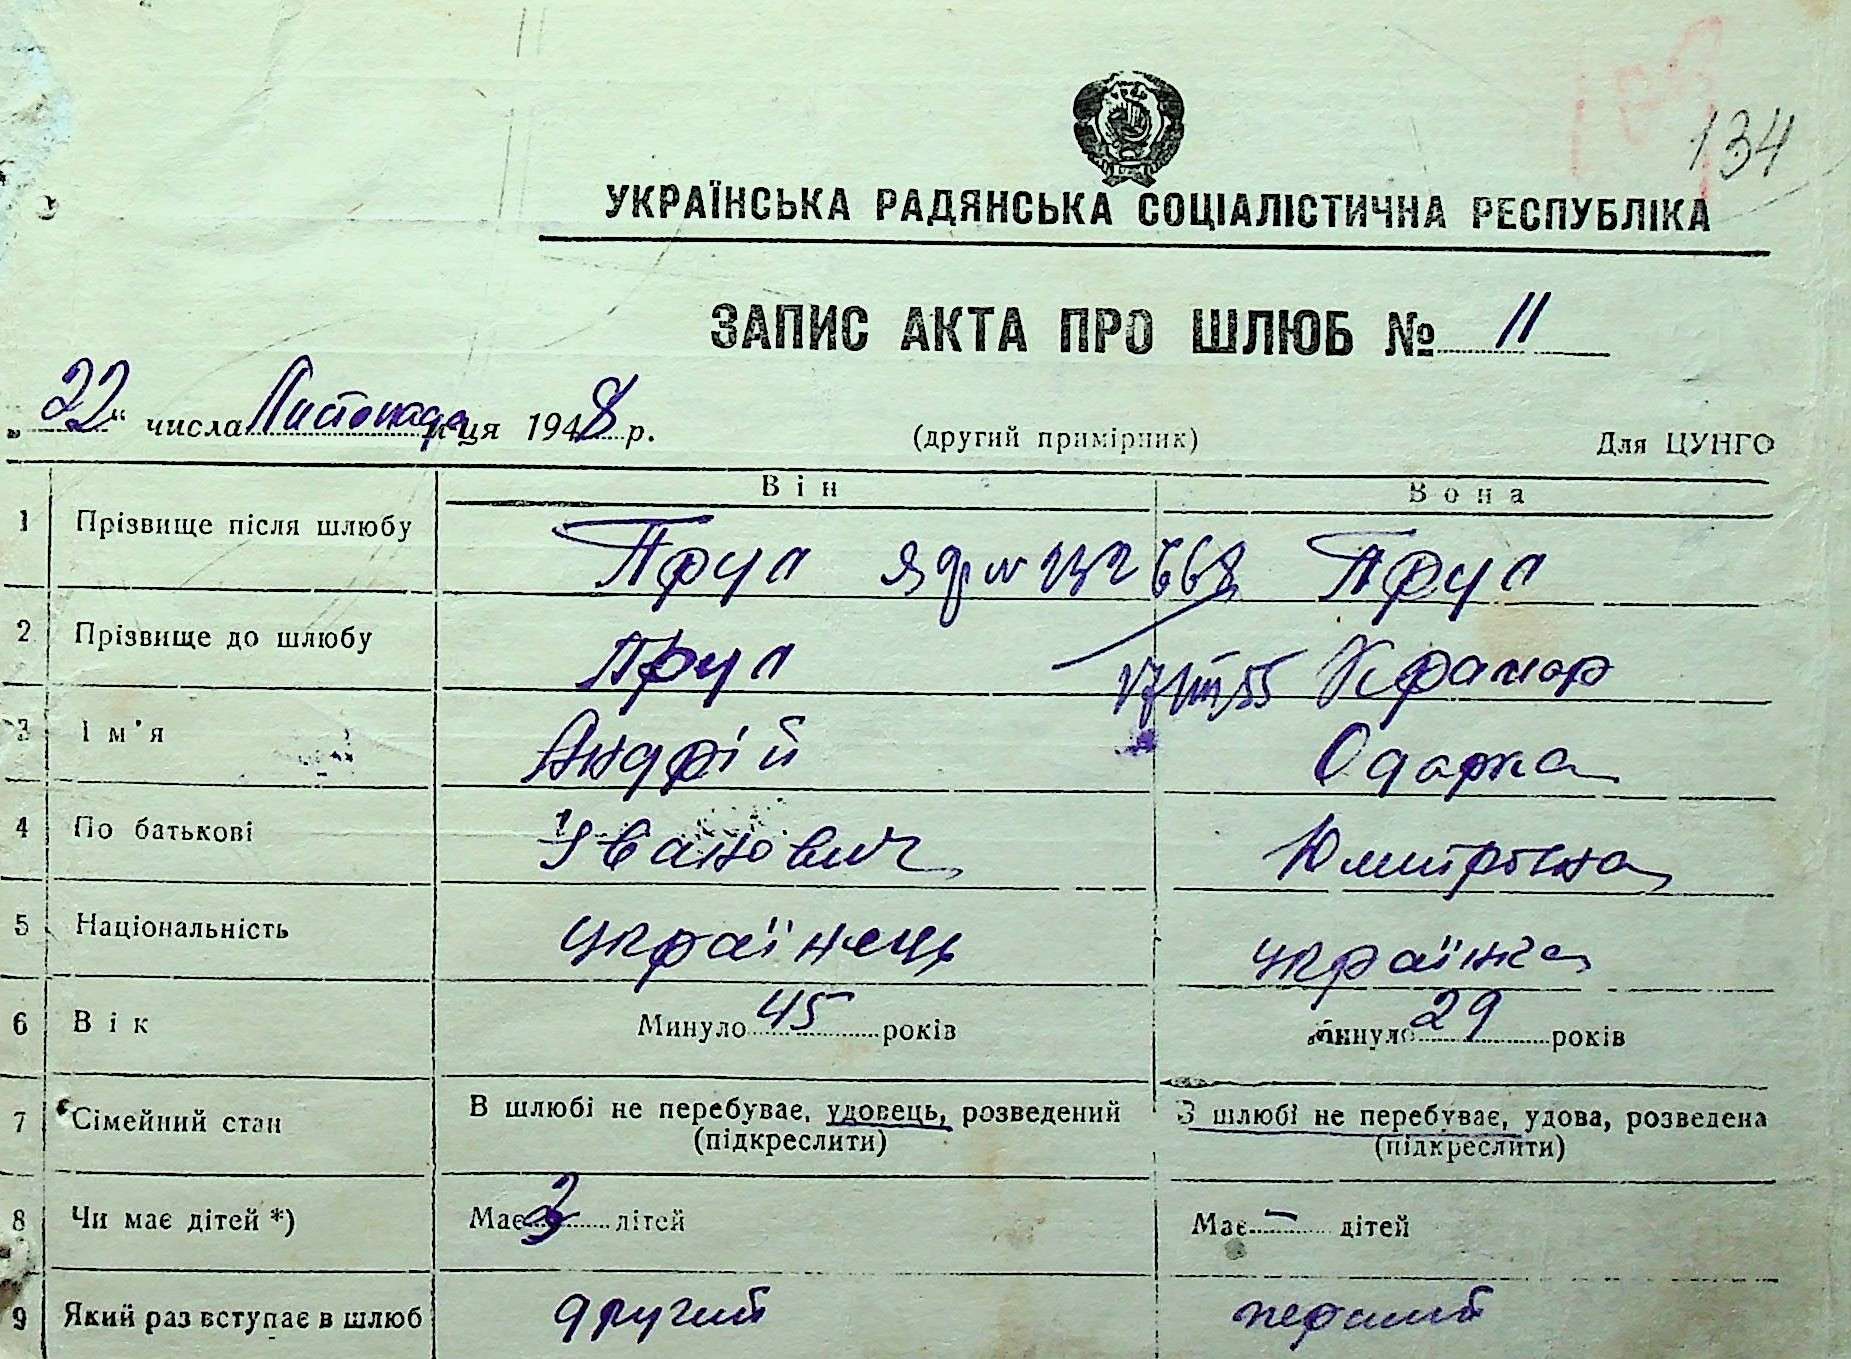 134
УКРАЇНСЬКА РАДЯНСЬКА СОЦІАЛІСТИЧНА РЕСПУБЛІКА
ЗАПИС АКТА ПРО ШЛЮБ № 11
„22“ числа Листопада м-ця 1948 р. (другий примірник) Для ЦУНГО
Він Вона
1 Прізвище після шлюбу Прус Прус
2 Прізвище до шлюбу Прус Крамар
3 Ім'я Андрій Одарка
4 По батькові Іванович Юмитровна
5 Національність українець українка
6 Вік Минуло 45 років Минуло 29 років
7 Сімейний стан В шлюбі не перебуває, удовець, розведений В шлюбі не перебуває, удова, розведена
(підкреслити) (підкреслити)
8 Чи має дітей *) Має дітей Має - дітей
9 Який раз вступає в шлюб другий первий